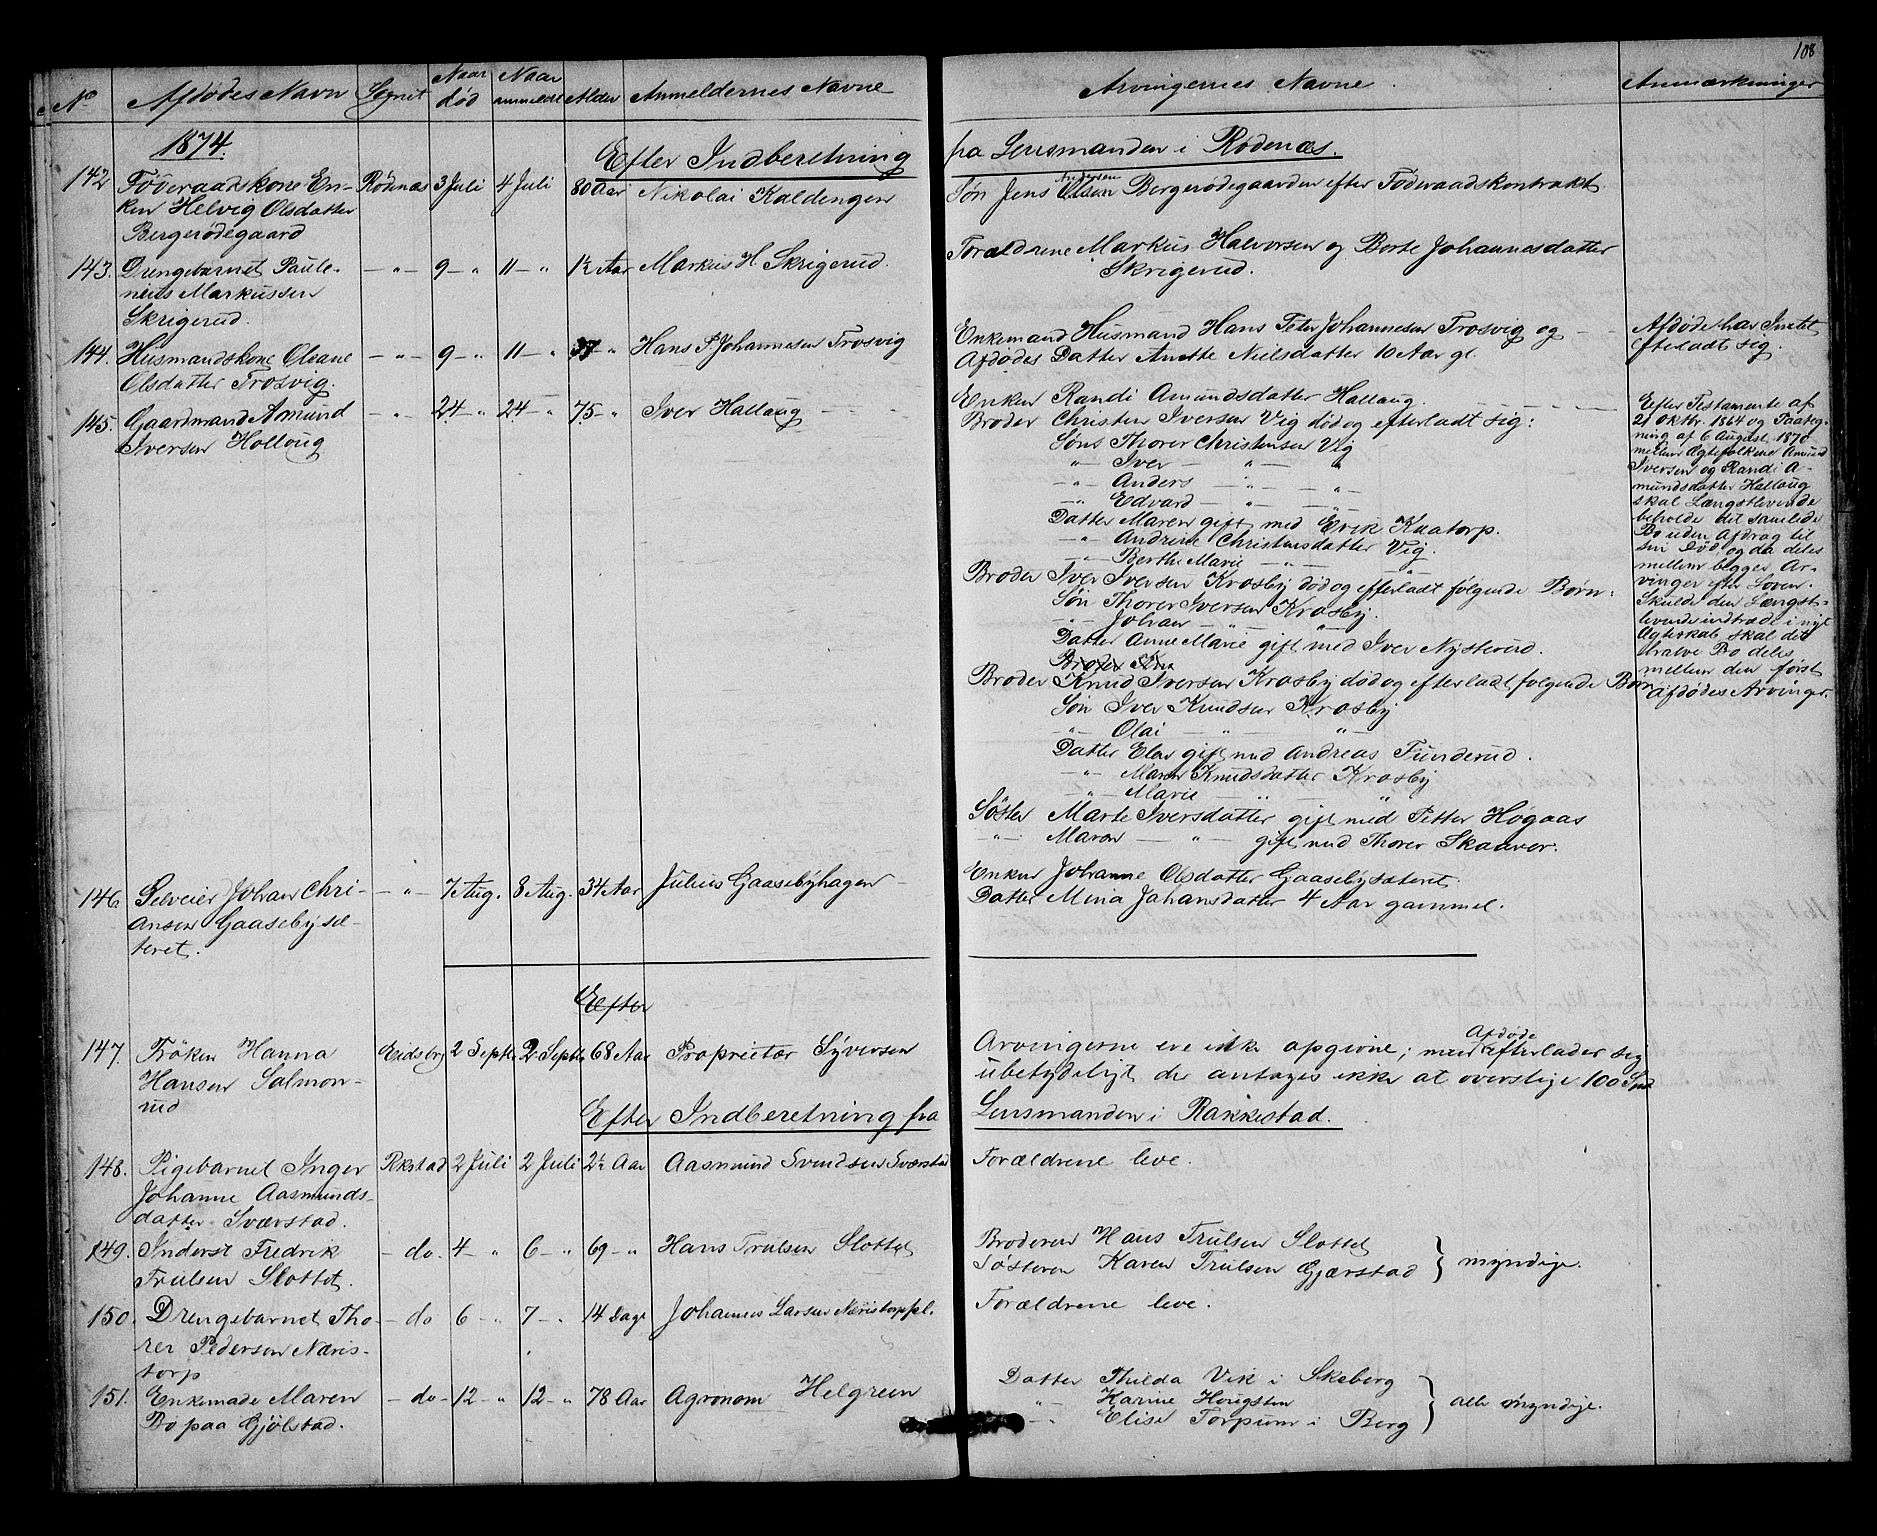 108
No Afdødes Navn Sognet Naar død Naar anmeldt Alder Anmeldernes Navne Arvingernes Navne Anmærkninger
1874.
Efter Indberetning fra Lensmanden i Rødenæs.
142 Føderaadskone En- Rødnæs 3 Juli 4 Juli 80 Aar Nikolai Kaldengen Søn Jens Andersen Bergerødegaarden efter Føderaadskontrakt
ken Helvig Olsdatter
Bergerødegaard
143. Drengebarnet Paule- –"– 9–" 11–" 1½ Aar Markus H. Skrigerud. Forældrene Markus Halvorsen og Borte Johannesdatter
nius Markussen Skrigerud.
Skrigerud.
144. Husmandskone Oleane –"– 9–" 11–" 37–" Hans P. Johannesen Trosvig Enkemand Husmand Hans Peter Johannesen Trosvig og Afdøde har Intet
Olsdatter Trosvig. Afdødes Datter Anette Nielsdatter 10 Aar gl. efterladt sig.
145. Gaardmand Amund –"– 24–" 24–" 75–" Iver Hallaug Enken Randi Amundsdatter Hallaug.
Iversen Hollaug Broder Christen Iversen Vig død og efterladt sig:
Søns Thorer Christensen Vig
–"– Iver –"– "
–"– Anders –"– –"–
–"– Edvard –"– –"–
Datter Maren gift med Erik Kaatorp.
–"– Andrine Christensdatter Vig.
–"– Berthe Marie –"– –"–
Broder Iver Iversen Krosby død og efterladt følgende Børn:
Søn Thorer Iversen Krosby.
–"– Johan –"– "
Datter Anne Marie gift med Iver Nysterud.
Broder
Broder Knud Iversen Krosby død og efterladt følgende Børn
Søn Iver Knudsen Krosby
–"– Olai –"– –"–
Datter Elen gift med Andreas Funderud.
–"– Maren Knudsdatter Krosby
–"– Marie –"– "
Søster Marte Iversdatter gift med Petter Høgaas
–"– Maren –"– gift med Thorer Skauver.
Efter Testamente af
21 Oktbr. 1864 og Paateg-
ning af 6 August 1870
mellem Ægtefolkene Amund
Iversen og Randi A-
mundsdatter Hallaug
skal Længstlevende
beholde det samlede
Bo uden Afdrag til
sin Død og da deles
mellem begges Ar-
vinger efter Loven.
Skulde den Længst-
levende indtræde i nyt
Ægteskab skal det
halve Bo deles
mellem den først
Afdødes Arvinger.
146. Selveier Johan Chri- –"– 7 Aug. 8 Aug. 34 Aar Julius Gaasebyhagen Enken Johanne Olsdatter Gaasebysæteret.
ansen Gaasebysæ- Datter Mina Johansdatter 4 Aar gammel.
teret.
Efter
147. Frøken Hanna Eidsbrg 2 Septr 2 Septr 68 Aar Proprietær Syversen Arvingerne ere ikke opgivne; men Afdøde efterlader sig
Hansen Salmon- ubetydeligt der antages ikke at overstige 100 Spd
rud
Efter Indberetning fra Lensmanden i Rakkestad.
148. Pigebarnet Inger Rkstad 2 Juli 2 Juli 2½ Aar Aasmund Svendsen Sværstad Forældrene leve.
Johanne Aasmunds-
datter Sværstad.
149. Inderst Fredrik – do 4–" 6–" 69–" Hans Trulsen Slottet Broderen Hans Trulsen Slottet
Trulsen Slottet. Søsteren Karen Trulsen Gjærstad } myndige.
150. Drengebarnet Tho- – do 6–" 7–" 14 Dage Johannes Larsen Næristorppl. Forældrene leve.
rer Pedersen Næris-
torp
151. Enkemade Maren – do – 12–" 12–" 78 Aar Agronom Helgreen Datter Thilda Vik i Skeberg
Bo paa Gjølstad. –"– Karine Hougsten } alle myndige.
–"– Elise Torpum i Berg